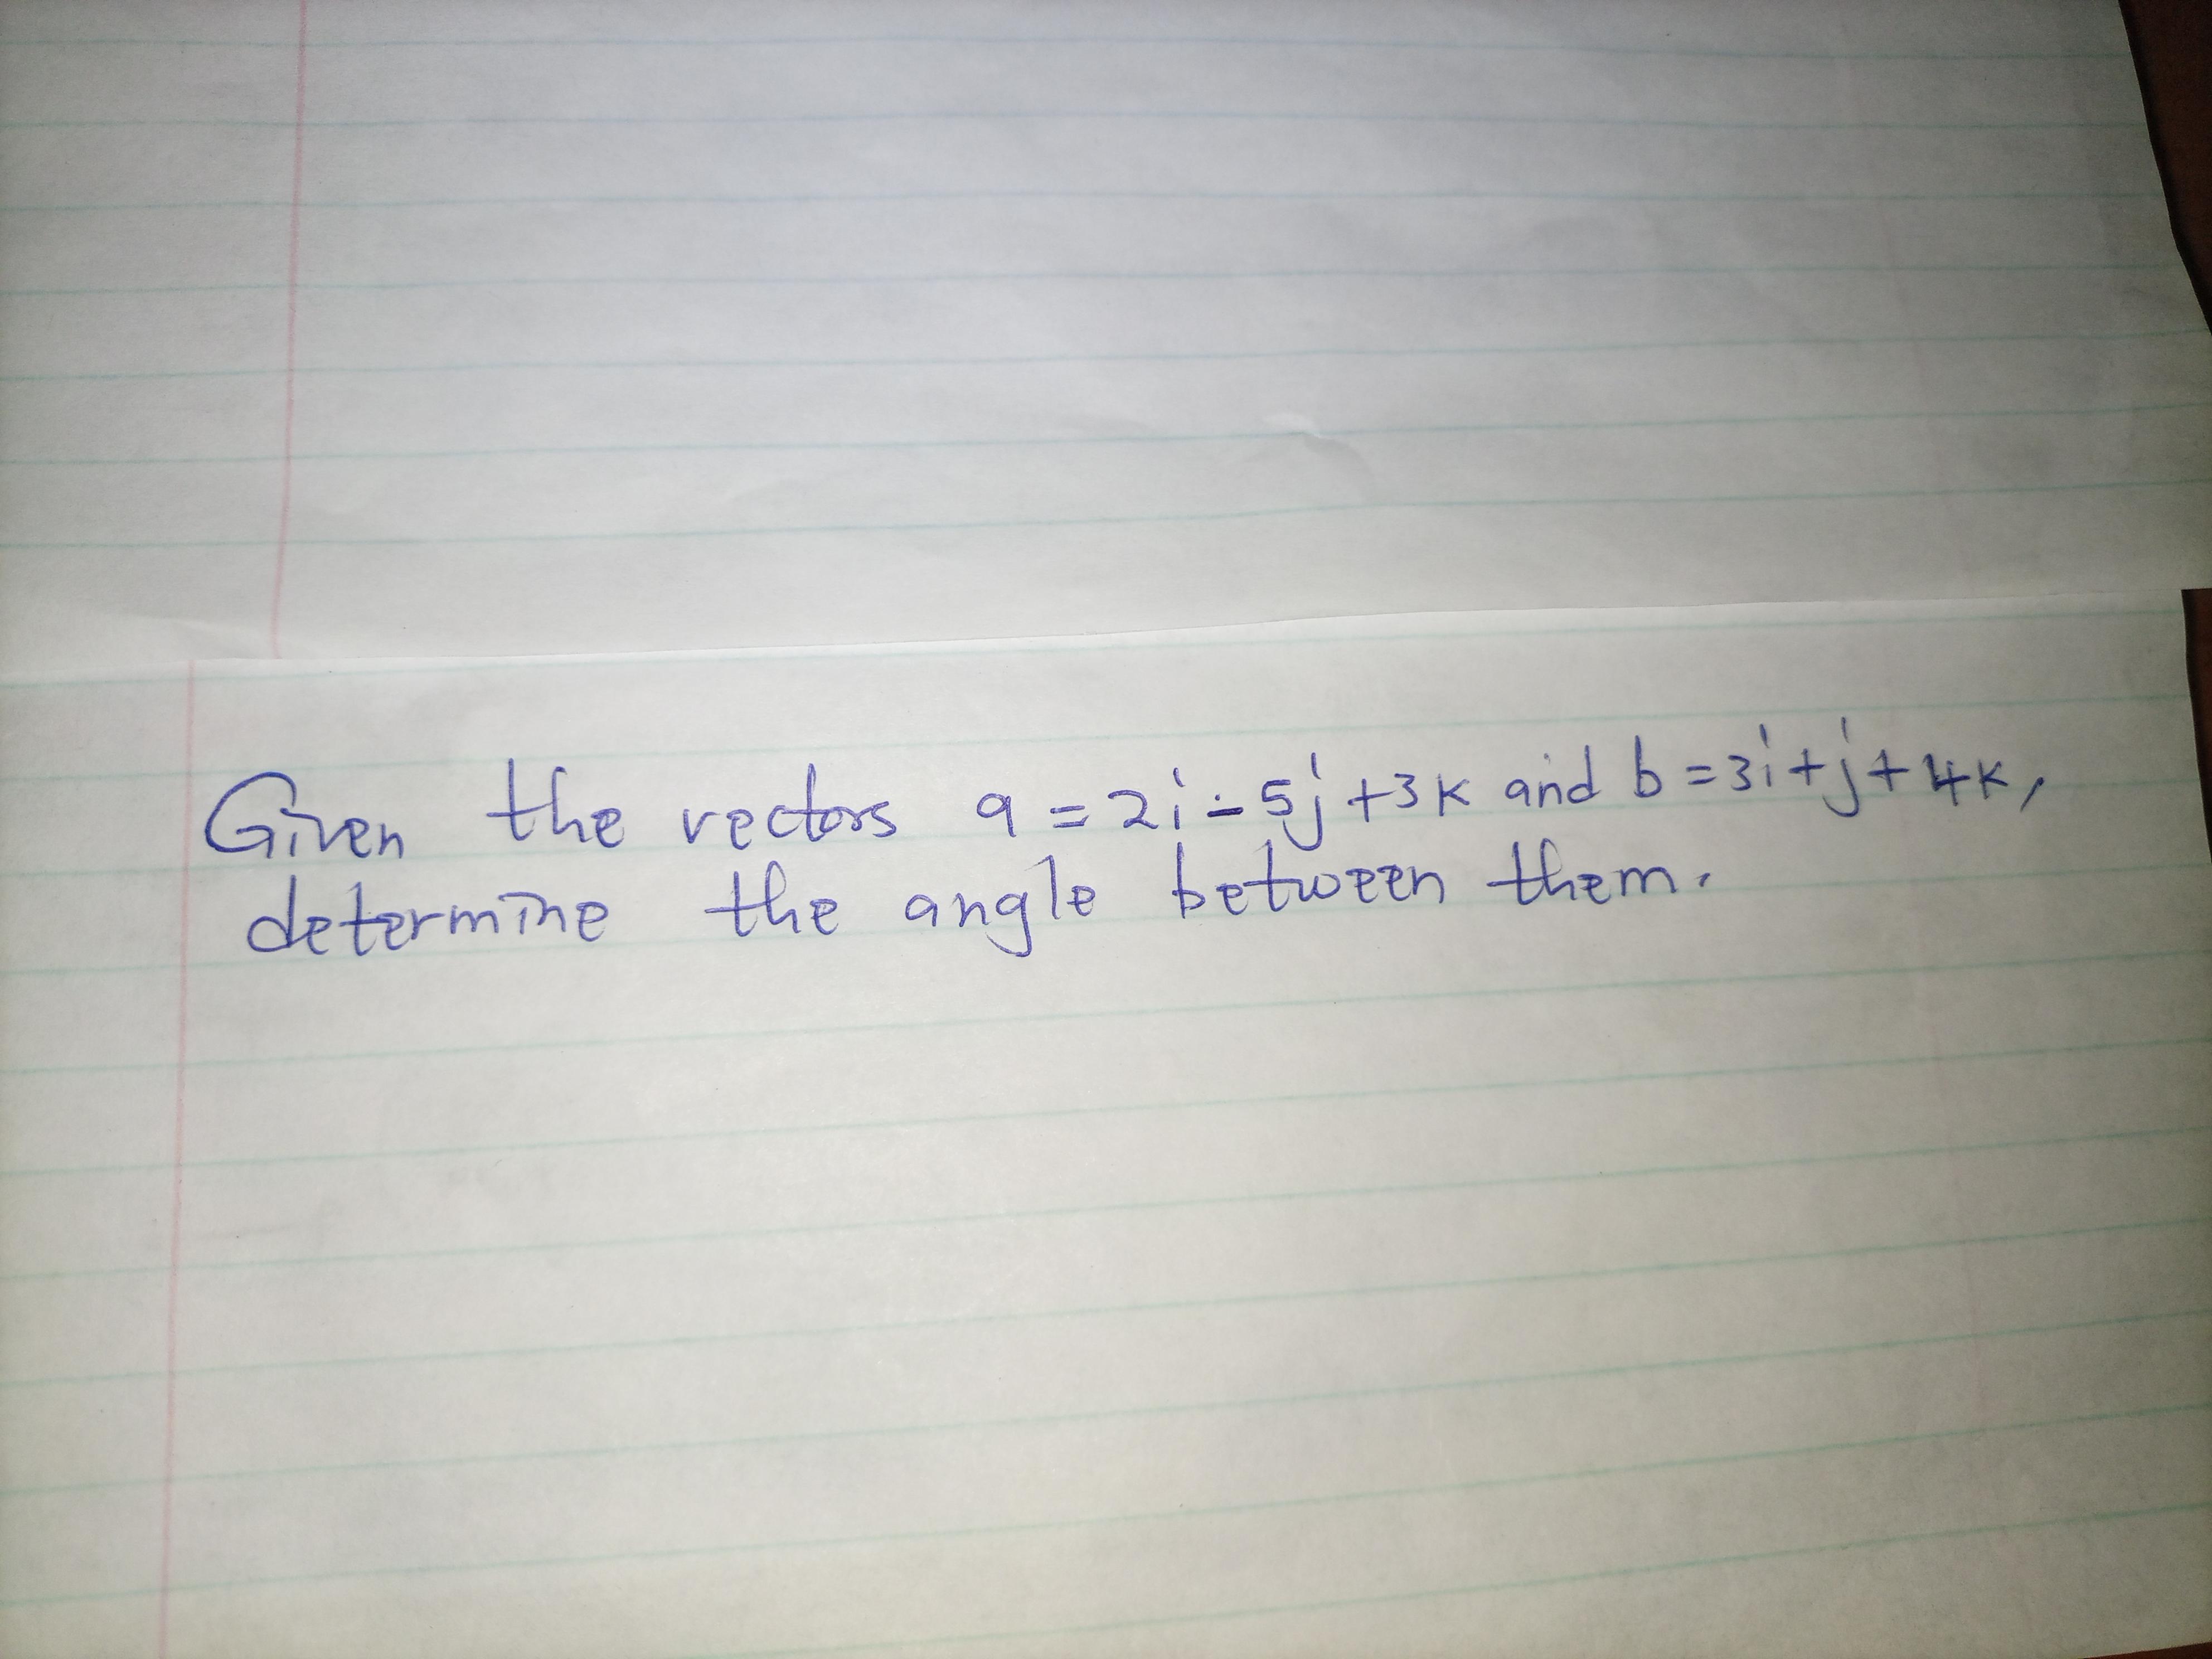 Given the vectors a = 2i - 5j + 3k and b = 3i + j + 4k,
determine the angle between them.